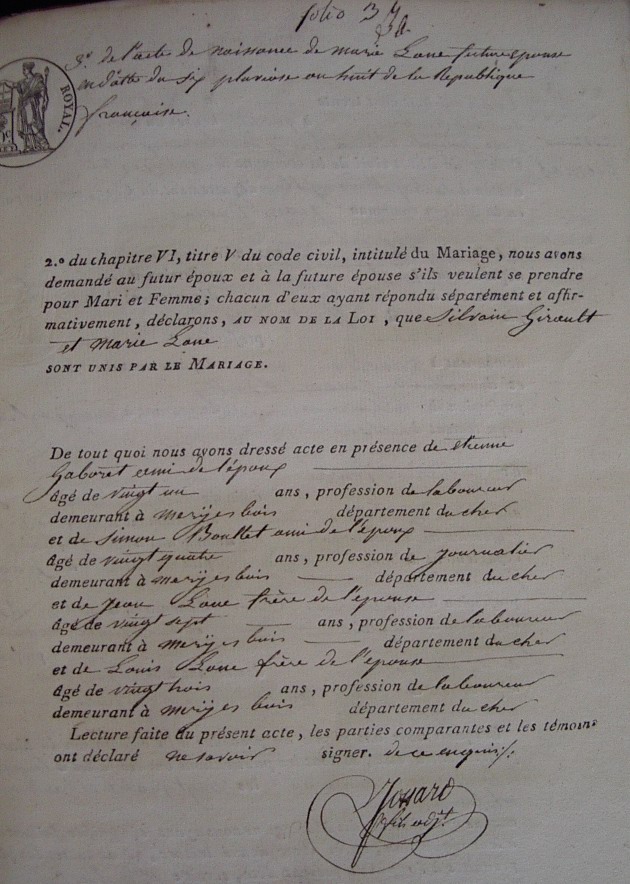 folio 37
3.º de l'acte de naissance de marie Lane future epouse
en datte du six pluviose an huit de la Republique
française.
ROYAL.
2.º du chapitre VI, titre V du code civil, intitulé du Mariage, nous avons
demandé au futur époux et à la future épouse s'ils veulent se prendre
pour Mari et Femme; chacun d'eux ayant répondu séparément et affir-
mativement, déclarons, AU NOM DE LA LOI, que Silvain Girault
et marie Lane
SONT UNIS PAR LE MARIAGE.
De tout quoi nous avons dressé acte en présence de etienne
Gaboret ami de l'époux
âgé de vingt un ans, profession de laboureur
demeurant à mery es bois département du cher
et de simon Boullet ami de l'époux
âgé de vingt quatre ans, profession de journalier
demeurant à mery es bois département du cher
et de jean Lane frère de l'epouse
âgé de vingt sept ans, profession de laboureur
demeurant à mery es bois département du cher
et de Louis Lane frère de l'épouse
âgé de vingt trois ans, profession de laboureur
demeurant à mery es bois département du cher
Lecture faite du présent acte, les parties comparantes et les témoins
ont déclaré ne savoir signer. de ce enquis